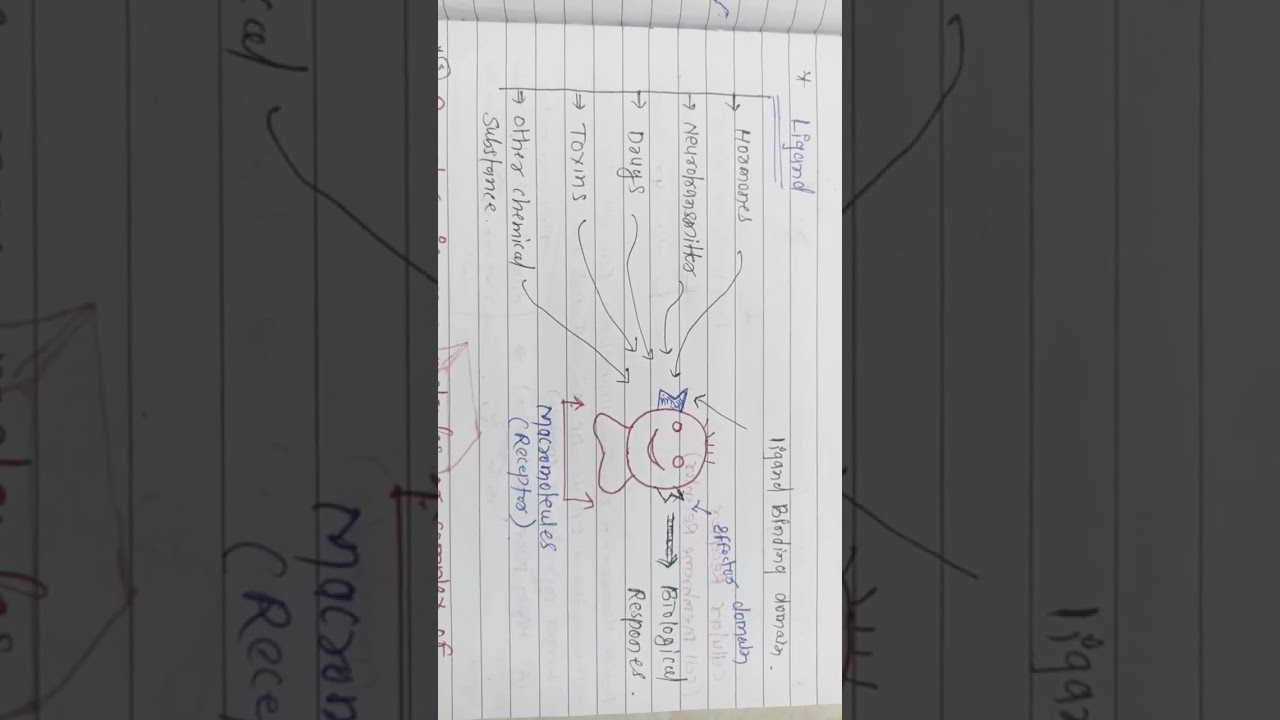 * Ligand
→ Hormones
→ Neurotransmitter
→ Drugs
→ Toxins
→ other chemical
substance.
ligand Binding domain.
effector domain
→ Biological
Responses.
Macromolecules
(Receptor)